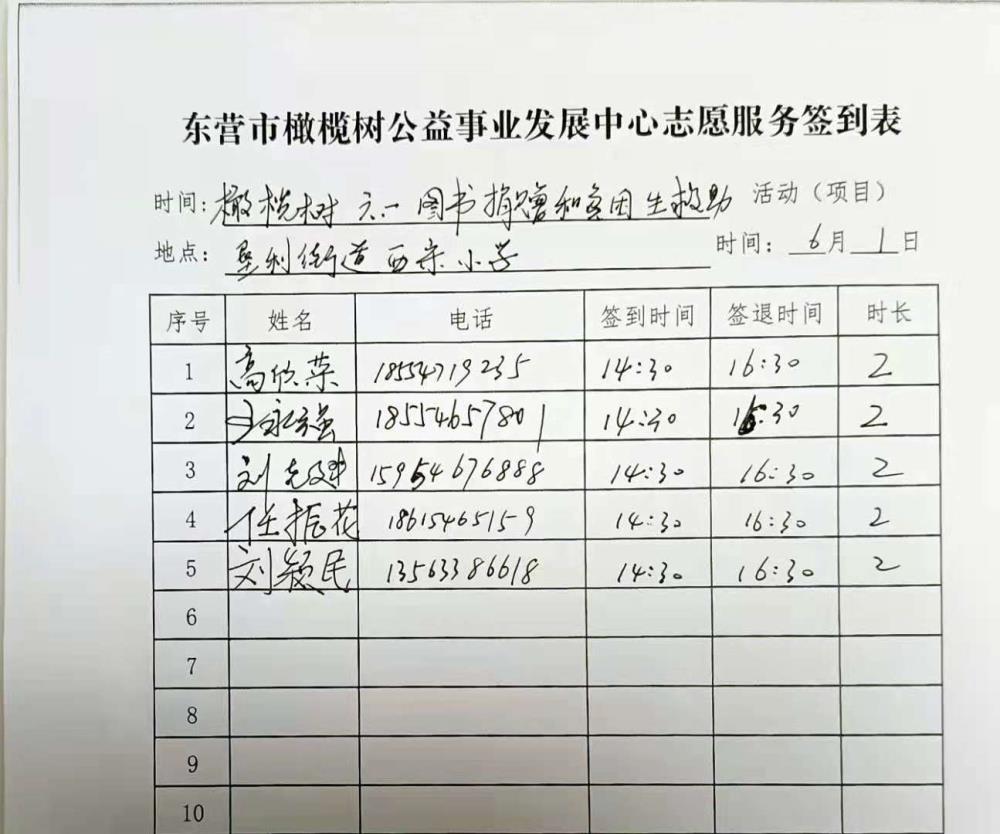 东营市橄榄树公益事业发展中心志愿服务签到表
时间：橄榄树 六一 图书捐赠和贫困生救助 活动（项目）
地点：垦利街道西宋小学 时间：6月1日
序号 姓名 电话 签到时间 签退时间 时长
1 高欣荣 18554719235 14:30 16:30 2
2 王永强 18554657801 14:30 16:30 2
3 刘 15954676888 14:30 16:30 2
4 任振花 18615465159 14:30 16:30 2
5 刘颖民 13563386618 14:30 16:30 2
6
7
8
9
10